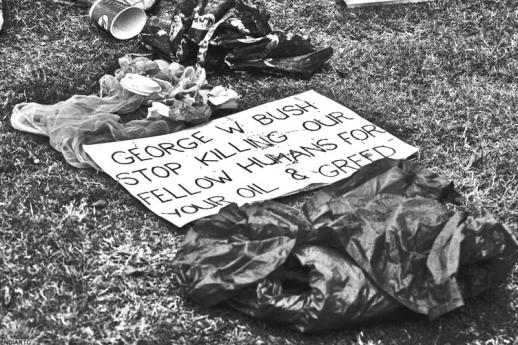 GEORGE W. BUSH
STOP KILLING OUR
FELLOW HUMANS FOR
YOUR OIL & GREED